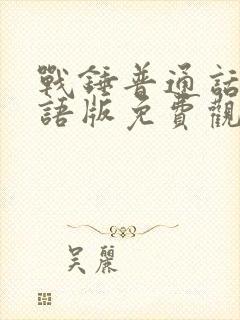 戰錘普通話
語版免費觀
吴麗